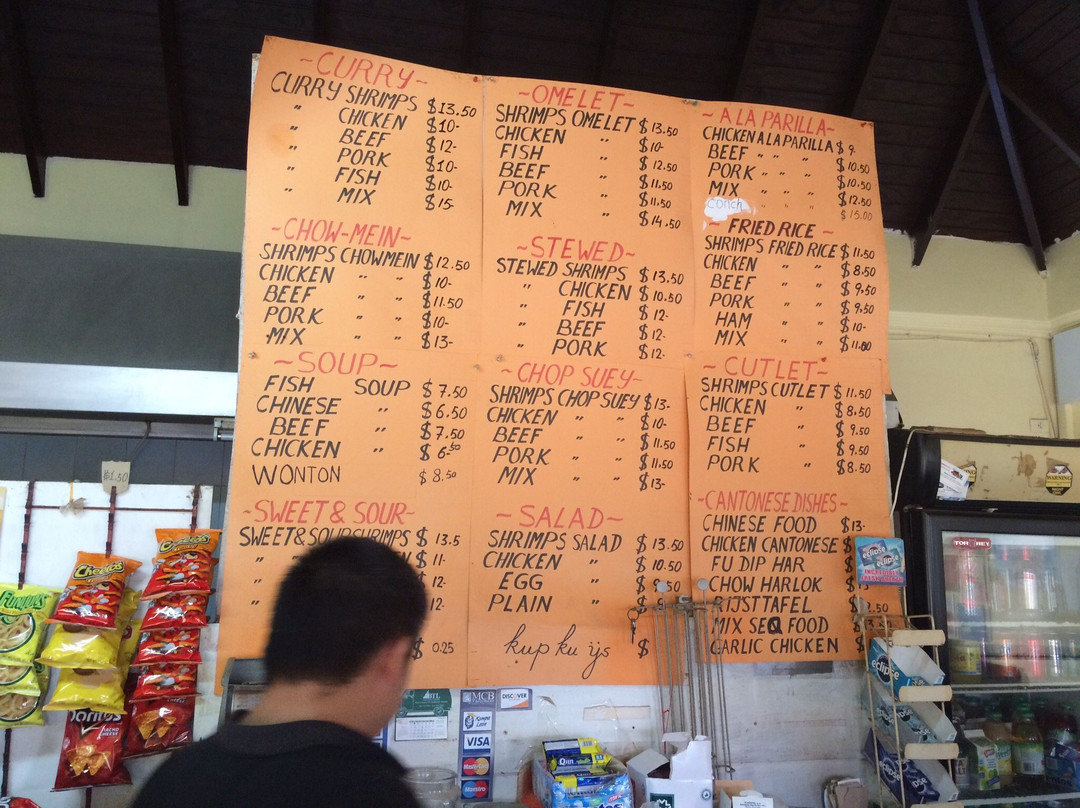 ~CURRY~
CURRY SHRIMPS $13.50
" CHICKEN $10-
" BEEF $12-
" PORK $10-
" FISH $10-
" MIX $15-
~CHOW-MEIN~
SHRIMPS CHOWMEIN $12.50
CHICKEN " " $10-
BEEF " " $11.50
PORK " " $10-
MIX " " $13-
~SOUP~
FISH SOUP $7.50
CHINESE " $6.50
BEEF " $7.50
CHICKEN " $6.50
WONTON $8.50
~SWEET & SOUR~
SWEET&SOUR SHRIMPS $13.5
" $11-
" 12-
" 12-
$0.25
~OMELET~
SHRIMPS OMELET $13.50
CHICKEN " $10-
FISH " $12.50
BEEF " $11.50
PORK " $11.50
MIX " $14.50
~STEWED~
STEWED SHRIMPS $13.50
" CHICKEN $10.50
" FISH $12-
" BEEF $12-
" PORK $12-
~CHOP SUEY~
SHRIMPS CHOP SUEY $13-
CHICKEN " " $10-
BEEF " " $11.50
PORK " " $11.50
MIX " " $13-
~SALAD~
SHRIMPS SALAD $13.50
CHICKEN " $10.50
EGG "
PLAIN "
kup ku ijs $
~A LA PARILLA~
CHICKEN A LA PARILLA $9-
BEEF " " " $10.50
PORK " " " $10.50
MIX " " " $12.50
CONCH " " " $15.00
~FRIED RICE~
SHRIMPS FRIED RICE $11.50
CHICKEN " " $8.50
BEEF " " $9.50
PORK " " $9.50
HAM " " $10-
MIX " " $11.00
~CUTLET~
SHRIMPS CUTLET $11.50
CHICKEN " $8.50
BEEF " $9.50
FISH " $9.50
PORK " $8.50
~CANTONESE DISHES~
CHINESE FOOD $13-
CHICKEN CANTONESE $
FU DIP HAR
CHOW HARLOK
RIJSTTAFEL 2.50
MIX SEQ FOOD
GARLIC CHICKEN $
$1.50
Cheetos
Cheetos
Funyuns
Doritos
BTL
MCB
DISCOVER
VISA
MasterCard
Maestro
eclipse
eclipse
eclipse
eclipse
WARNING